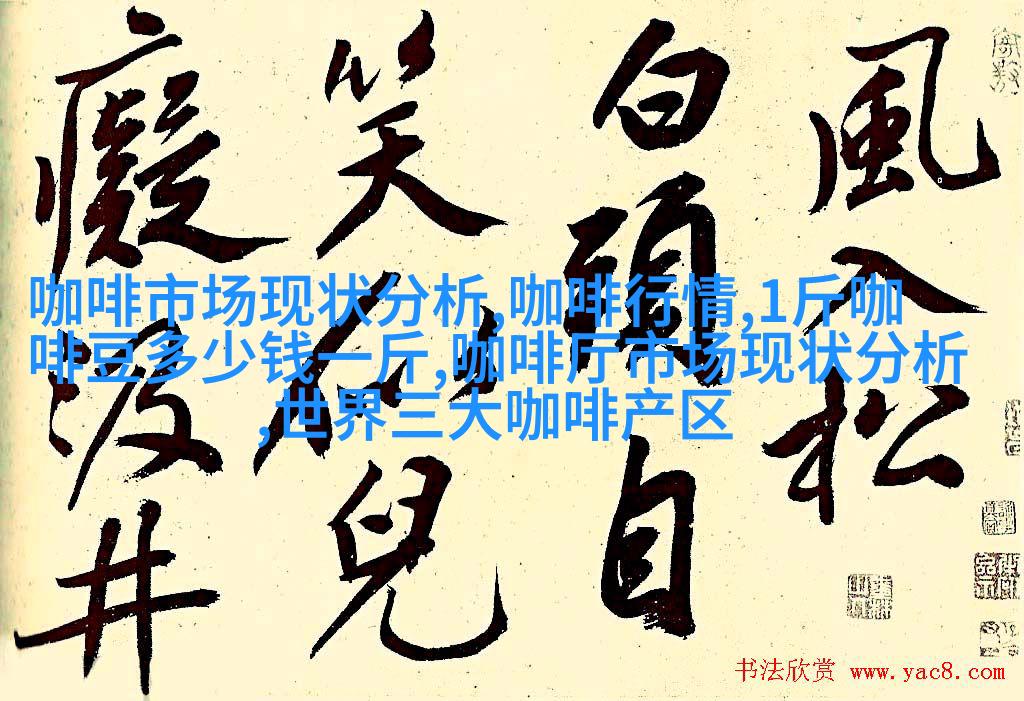 風入松
白頭自
笑似兒
癡汲井
咖啡市场现状分析,咖啡行情,1斤咖
啡豆多少钱一斤,咖啡厅市场现状分析
,世界三大咖啡产区
书法欣赏 www.yac8.com